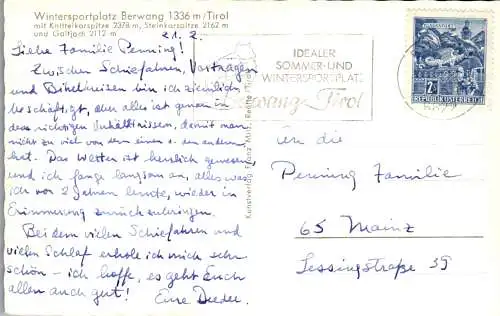 Wintersportplatz Berwang 1336 m/Tirol
mit Knittelkarspitze 2378 m, Steinkarspitze 2162 m
und Galtjoch 2112 m
21. 2.
Liebe Familie Penning!
Zwischen Schiefahren, Vorträgen
und Bibelkreisen bin ich ziemlich
beschäftigt, aber alles ist genau in
den richtigen Verhältnissen, damit man
nicht zu viel von dem einen o. den anderen
hat. Das Wetter ist herrlich gewesen,
und ich fange langsam an, alles was
ich vor 2 Jahren lernte, wieder in
Erinnerung zurückzubringen.
Bei dem vielen Schiefahren und
vielen Schlaf erhole ich mich sehr
schön - ich hoffe, es geht Euch
allen auch gut! Eure Deeder.
Kunstverlag Franz Milz, Reutte (Tirol)
IDEALER
SOMMER-UND
WINTERSPORTPLATZ
Berwang-Tirol
2S
REPUBLIK ÖSTERREICH
An die
Penning Familie
65 Mainz
Lessingstraße 39